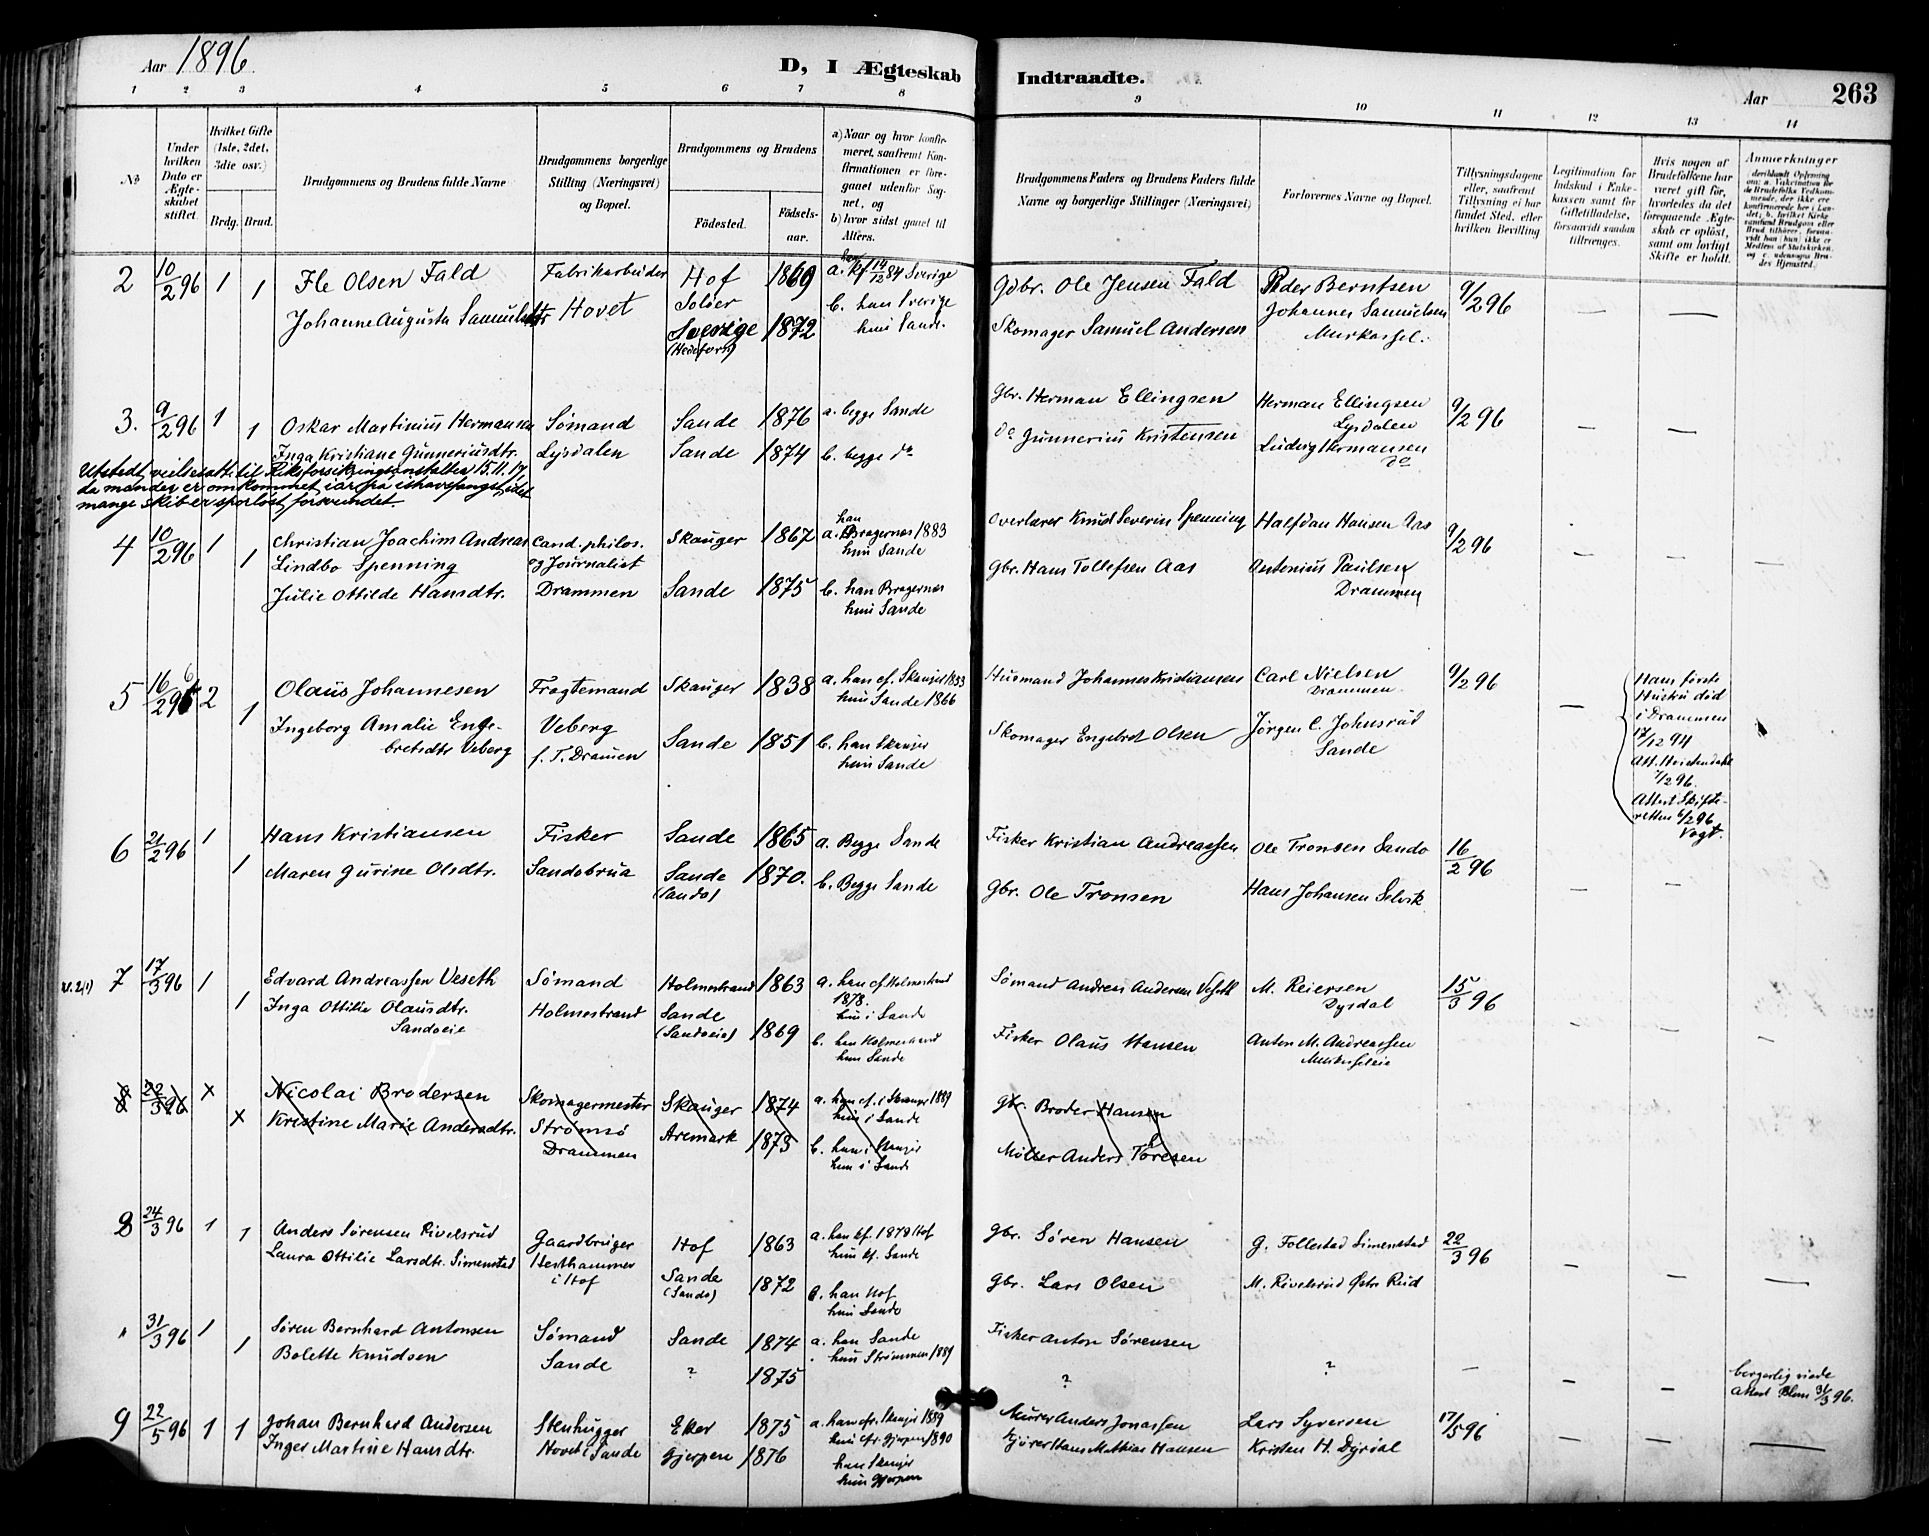 Aar 1896
D, I Ægteskab Indtraadte.
Aar 263
1 2 3 4 5 6 7 8 9 10 11 12 13 14
No
Under hvilken Dato er Ægteskabet stiftet.
Hvilket Gifte (1ste, 2det, 3die osv.)
Brdg. Brud.
Brudgommens og Brudens fulde Navne
Brudgommens borgerlige Stilling (Næringsvei) og Bopæl.
Brudgommens og Brudens
Födested.
Födselsaar.
a) Naar og hvor konfirmeret, saafremt Konfirmationen er foregaaet udenfor Sognet, og
b) hvor sidst gaaet til Alters.
Brudgommens Faders og Brudens Faders fulde Navne og borgerlige Stillinger (Næringsvei)
Forlovernes Navne og Bopæl.
Tillysningsdagene eller, saafremt Tillysning ei har fundet Sted, efter hvilken Bevilling
Legitimation for Indskud i Enkekassen samt for Giftetilladelse, forsaavidt saadan tiltrænges.
Hvis nogen af Brudefolkene har været gift før, hvorledes da det foregaaende Ægteskab er oplöst, samt om lovligt Skifte er holdt.
Anmærkninger
2 10/2 96 1 1 Ole Olsen Fald Fabrikarbeider Hof 1869 a. han kf 14/12 84 Sverige Gdbr. Ole Jensen Fald Peder Berntsen 9/2 96
Solöer b. han Sverige Johannes Samuelsen
Johanne Augusta Samuelsdtr Hovet Sverige 1872 hun Sande. Skomager Samuel Andersen
(Hedefors)
3. 9/2 96 1 1 Oskar Martinius Hermansen Sømand Sande 1876 a. begge Sande Gbr. Herman Ellingsen Herman Ellingsen 9/2 96
Lysdalen
Inga Kristiane Gunneriusdtr. Lysdalen Sande 1874 b. begge do do Gunnerius Kristensen Ludvig Hermansen
do
Utstedt vielsesattest til Riksforsikringsanstalten 15.11.17
da manden er omkommet i år på ishavsfangst, idet
mange skib er sporløst forsvundet.
4 10/2 96 1 1 Christian Joachim Andreas Cand. philos. Skauger 1867 a. han Bragernes 1883 Overlærer Knud Severin Spenning Halfdan Hansen Aas 9/2 96
Lindbo Spenning og Journalist hun Sande
Julie Ottilde Hansdtr. Drammen Sande 1875 b. han Bragernes Gbr. Hans Tollefsen Aas Antonius Paulsen
hun Sande Drammen
5 16/2 96 2 1 Olaus Johannesen Fragtemand Skauger 1838 a. han cf. Skauger 1853 Husmand Johannes Kristiansen Carl Nielsen 9/2 96
hun Sande 1866 Drammen.
Ingeborg Amalie Engebretsdtr Veberg Veberg Sande 1851 b. han Skauger Skomager Engebret Olsen Jørgen C. Johnsrud
f. T. Dramen hun Sande Sande
Hans første
Hustru död
i Drammen
17/12 94
Att. Hvistendahl
7/2 96.
Attest Skifteretten 6/2 96
Vogt.
6 21/2 96 1 1 Hans Kristiansen Fisker Sande 1865 a. Begge Sande Fisker Kristian Andreassen Ole Tronsen Sandø 16/2 96
Maren Gurine Olsdtr. Sandebrua Sande 1870. b. Begge Sande Gbr. Ole Tronsen Hans Johansen Selvik
(Sandø)
7 17/3 96 1 1 Edvard Andreassen Veseth Sømand Holmestrand 1863 a. han cf Holmestrand Sømand Andreas Andersen Veseth M. Reiersen 15/3 96
1878. Dysdal
Inga Ottilie Olausdtr. Holmestrand Sande 1869 hun i Sande Fisker Olaus Hansen Anton M. Andreassen
Sandøeie (Sandøeie) b. han Holmestrand
hun Sande
8 22/3 96 Nicolai Brodersen Skomagermester Skauger 1874 a. han cf. i Skauger 1889 Gbr. Broder Hansen
hun i Sande
Kristine Marie Andersdtr. Strømsö Aremark 1873 b. han i Skauger Møller Anders Toresen
Drammen hun i Sande
8 24/3 96 1 1 Anders Sørensen Rivelsrud Gaardbruger Hof 1863 a. han kf. 1878 Hof Gbr. Søren Hansen G. Follestad Simenstad 22/3 96
hun kf. Sande
Laura Ottilie Larsdtr. Simenstad i Hof Sande 1872 b. han Hof Gbr. Lars Olsen M. Rivelsrud Østre Rud
(Sandø) hun Sande
" 31/3 96 1 1 Søren Bernhard Antonsen Sømand Sande 1874 a. han Sande Fisker Anton Sørensen
hun Strømmen 1889
Bolette Knudsen Sande ? 1875 ? ? borgerlig viede
Attest Blom 31/3 96.
9 22/5 96 1 1 Johan Bernhard Andersen Stenhugger Eker 1875 a. han cfr. Skauger 1889 Murer Anders Jonassen Lars Syversen 17/5 96
hun cfr Gjerpen 1890
Inger Martine Hansdtr. Hovet i Sande Gjerpen 1876 han Skauger Kjører Hans Mathias Hansen Kristen H. Dyrdal
hun Gjerpen